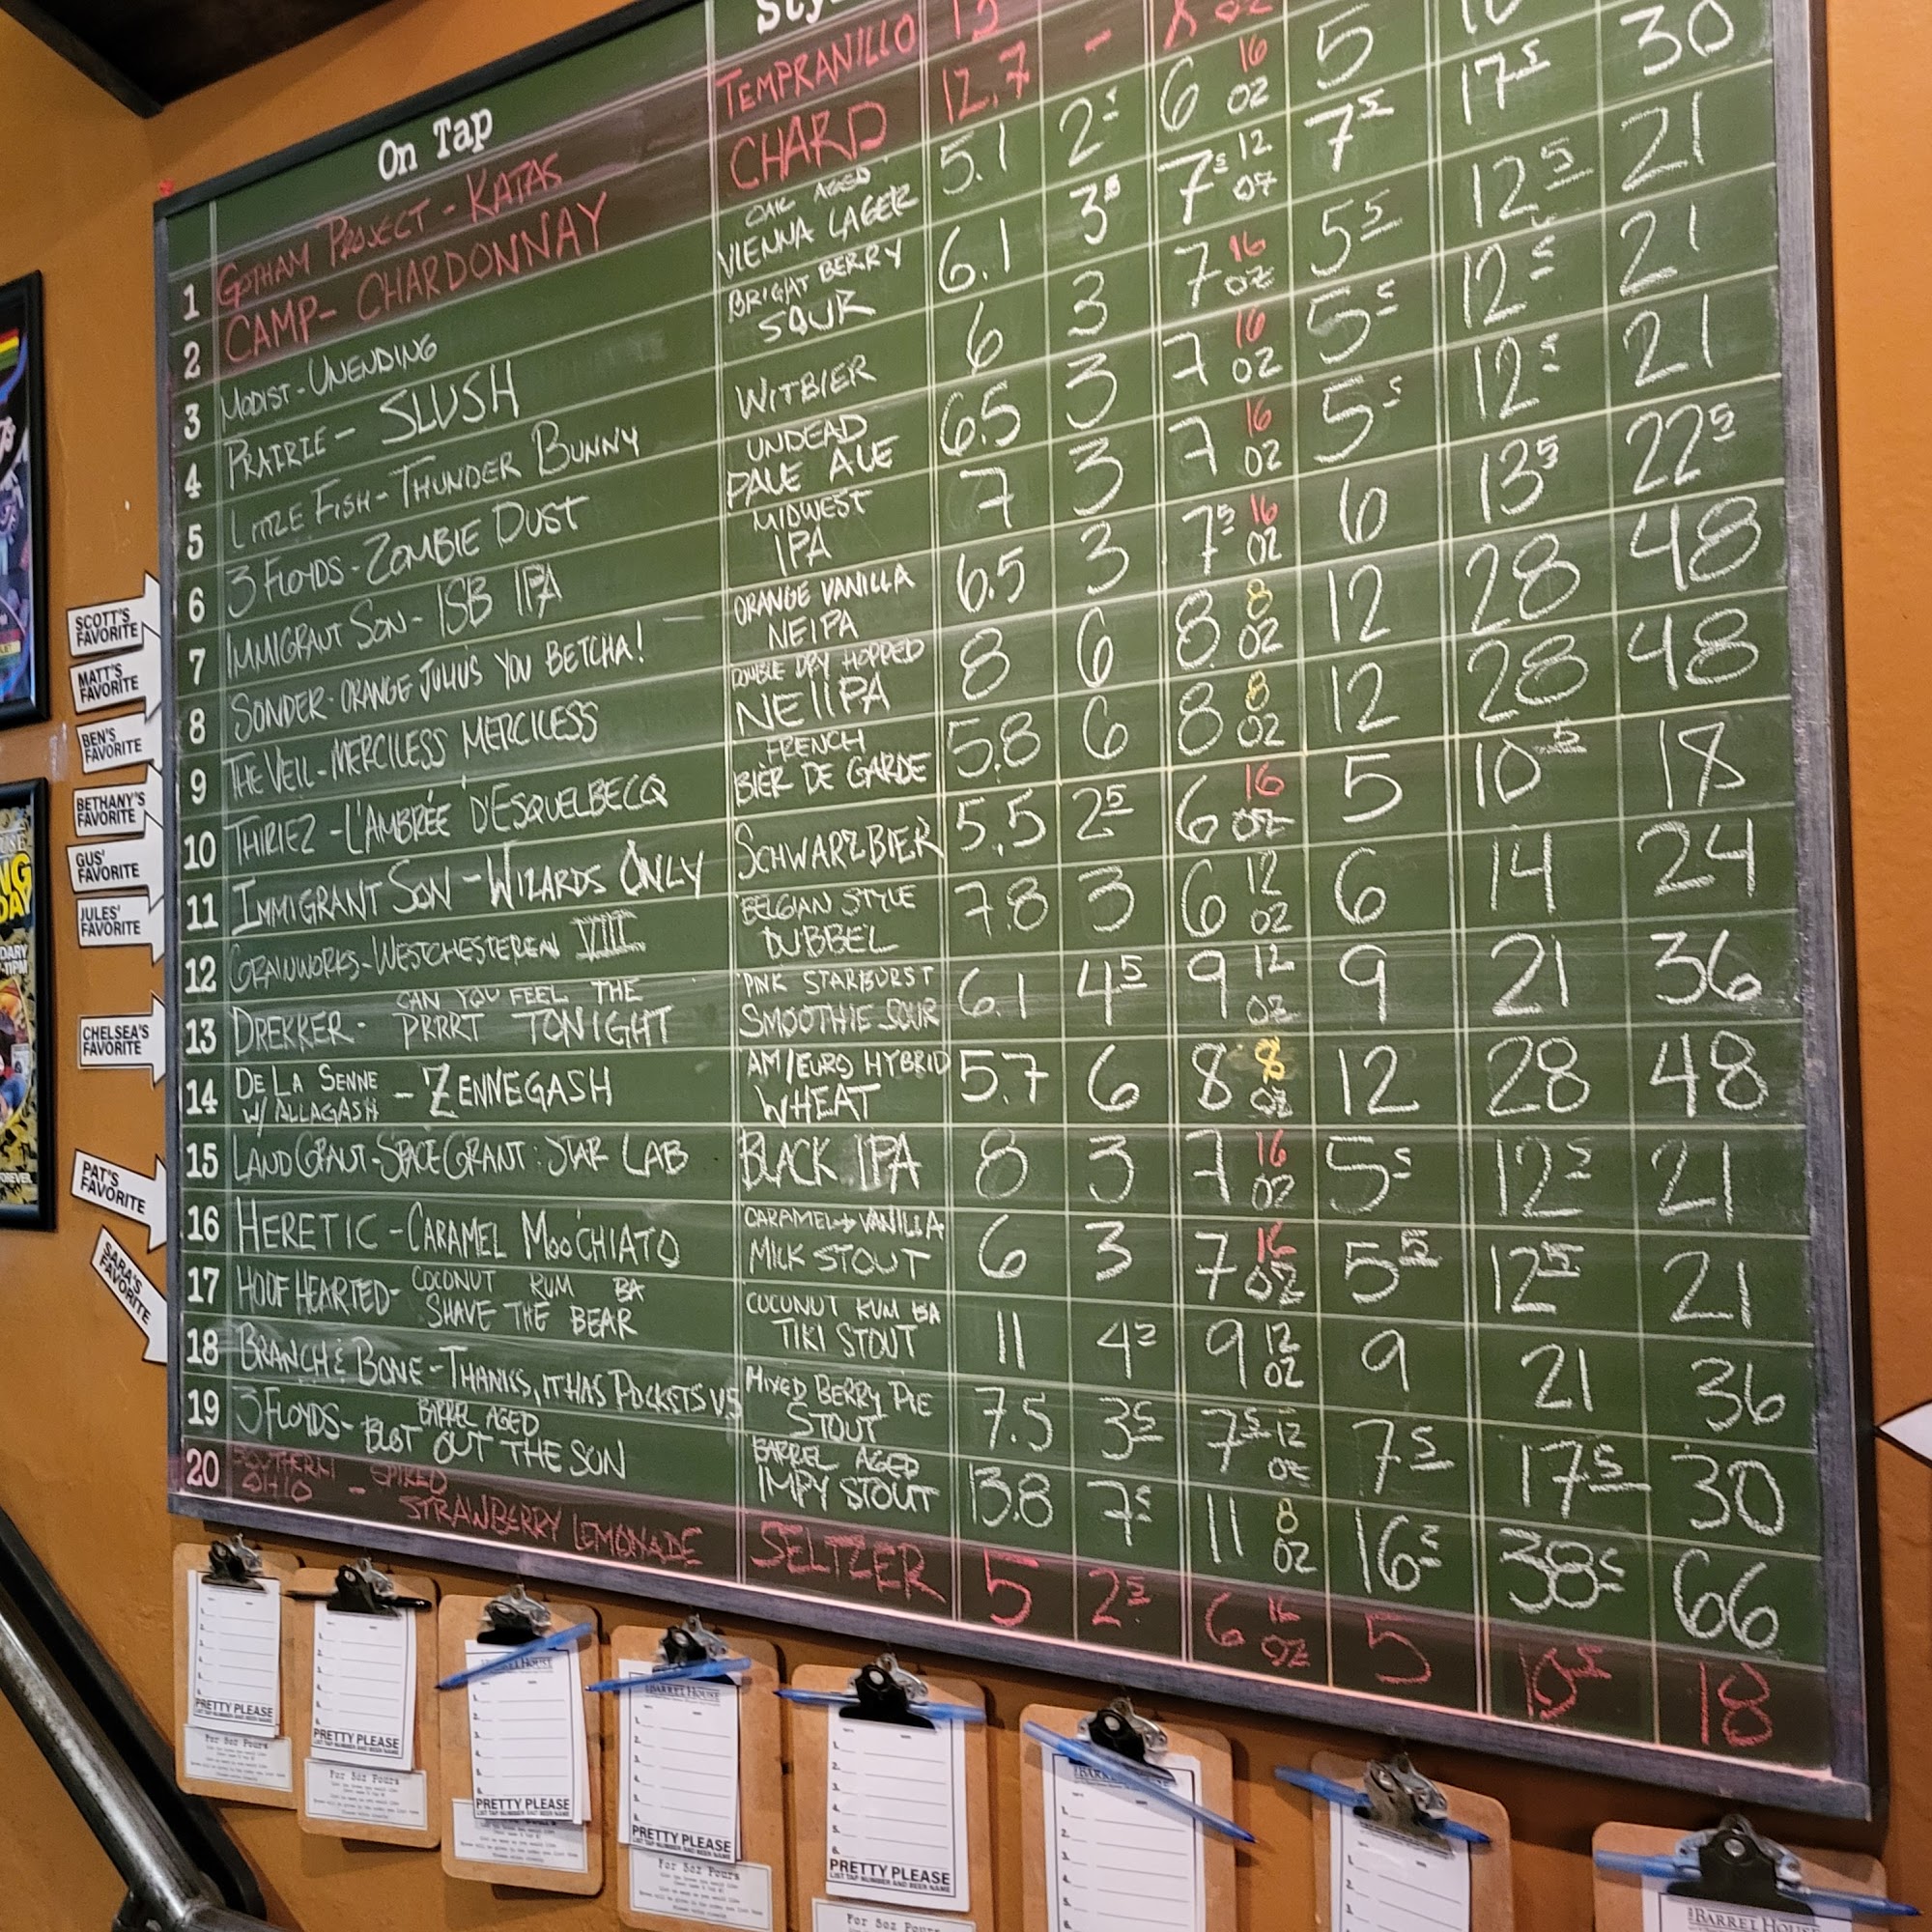 On Tap
1 GOTHAM PROJECT - KATAS TEMPRANILLO 13 -
2 CAMP- CHARDONNAY CHARD 12.7
3 MODIST - UNENDING OAK AGED VIENNA LAGER 5.1 2⁵ 6 16 OZ 5
4 PRAIRIE - SLUSH BRIGHT BERRY SOUR 6.1 3⁵ 7⁵ 12 OZ 7⁵ 17⁵ 30
5 LITTLE FISH - THUNDER BUNNY WITBIER 6 3 7 16 OZ 5⁵ 12⁵ 21
6 3 FLOYDS - ZOMBIE DUST UNDEAD PALE ALE 6.5 3 7 16 OZ 5⁵ 12⁵ 21
7 IMMIGRANT SON - ISB IPA MIDWEST IPA 7 3 7 16 OZ 5⁵ 12⁵ 21
8 SONDER - ORANGE JULIUS YOU BETCHA! ORANGE VANILLA NEIPA 6.5 3 7⁵ 16 OZ 6 13⁵ 22⁵
9 THE VEIL - MERCILESS MERCILESS DOUBLE DRY HOPPED NEIIPA 8 6 8 8 OZ 12 28 48
10 THIRIEZ - L'AMBRÉE D'ESQUELBECQ FRENCH BIER DE GARDE 5.8 6 8 8 OZ 12 28 48
11 IMMIGRANT SON - WIZARDS ONLY SCHWARZBIER 5.5 2⁵ 6 16 OZ 5 10⁵ 18
12 GRAINWORKS - WESTCHESTEREN VIII BELGIAN STYLE DUBBEL 7.8 3 6 12 OZ 6 14 24
13 DREKKER - CAN YOU FEEL THE PRRRT TONIGHT PINK STARBURST SMOOTHIE SOUR 6.1 4⁵ 9 12 OZ 9 21 36
14 DE LA SENNE W/ ALLAGASH - ZENNEGASH AM/EURO HYBRID WHEAT 5.7 6 8 8 OZ 12 28 48
15 LAND GRANT - SPACE GRANT: STAR LAB BLACK IPA 8 3 7 16 OZ 5⁵ 12⁵ 21
16 HERETIC - CARAMEL MOO'CHIATO CARAMEL + VANILLA MILK STOUT 6 3 7 16 OZ 5⁵ 12⁵ 21
17 HOOF HEARTED - COCONUT RUM BA SHAVE THE BEAR COCONUT RUM BA TIKI STOUT 11 4⁵ 9 12 OZ 9 21 36
18 BRANCH & BONE - THANKS, IT HAS POCKETS V5 MIXED BERRY PIE STOUT 7.5 3⁵ 7⁵ 12 OZ 7⁵ 17⁵ 30
19 3 FLOYDS - BARREL AGED BLOT OUT THE SUN BARREL AGED IMPY STOUT 13.8 7⁵ 11 8 OZ 16⁵ 38⁵ 66
20 SOUTHERN OHIO - SPIKED STRAWBERRY LEMONADE SELTZER 5 2⁵ 6 16 OZ 5 10⁵ 18
SCOTT'S FAVORITE
MATT'S FAVORITE
BEN'S FAVORITE
BETHANY'S FAVORITE
GUS' FAVORITE
JULES' FAVORITE
CHELSEA'S FAVORITE
PAT'S FAVORITE
SARA'S FAVORITE
PRETTY PLEASE
For 5oz Pours
PRETTY PLEASE
For 5oz Pours
PRETTY PLEASE
PRETTY PLEASE
LIST TAP NUMBER AND BEER NAME
For 5oz Pours
BARREL HOUSE
PRETTY PLEASE
LIST TAP NUMBER AND BEER NAME
For 5oz Pours
BARREL HOUSE